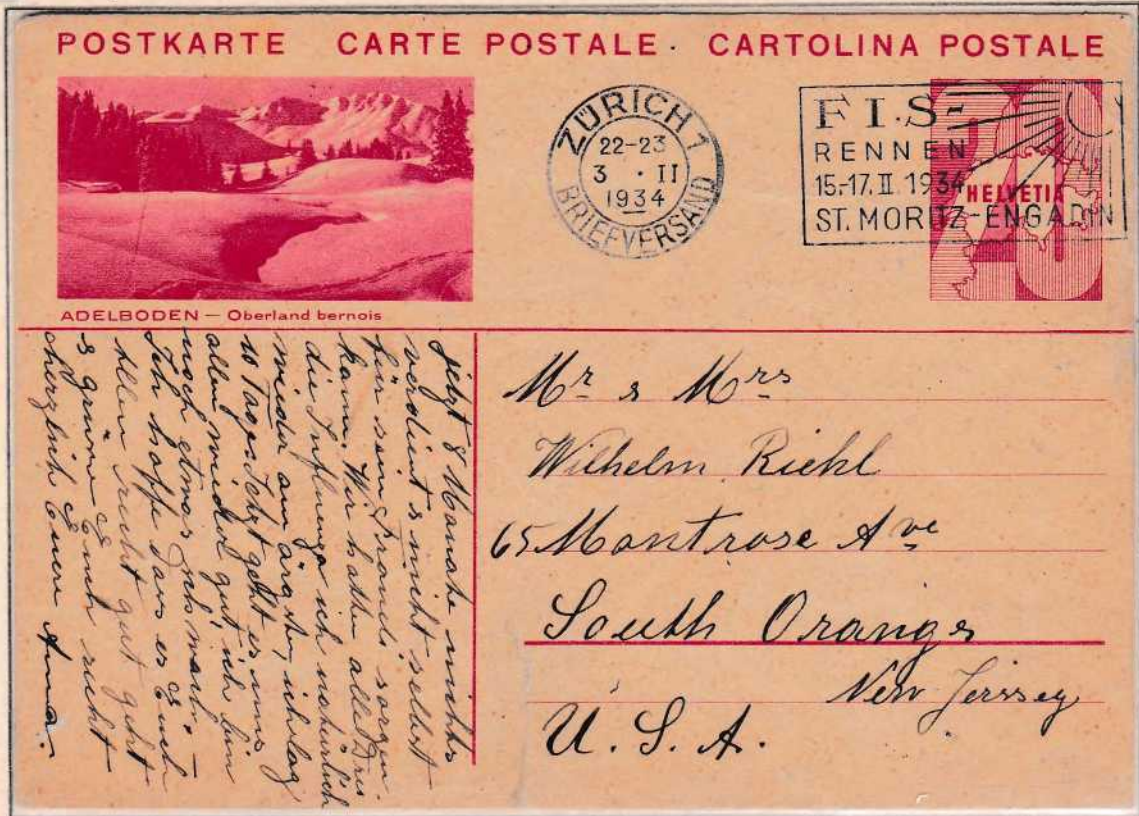 POSTKARTE CARTE POSTALE · CARTOLINA POSTALE
ZÜRICH 1
22-23
3 · II
1934
BRIEFVERSAND
F.I.S-
RENNEN
15.-17. II. 1934
ST. MORITZ-ENGADIN
HELVETIA
20
ADELBODEN — Oberland bernois
jetzt 8 Monate nichts
verdient & nicht selbst
für sein sorgen
kann. Wir hatten alle Drei
die Influenza ich natürlich
wieder am ärgsten, ich lag
10 Tage. Jetzt geht es uns
allen wieder gut, ich bin
noch etwas schwach.
Ich hoffe dass es Euch
Allen recht gut geht
& grüsse Euch recht
herzlich Euere Anna.
Mr & Mrs
Wilhelm Riehl
65 Montrose Ave
South Orange
New Jerssey
U. S. A.